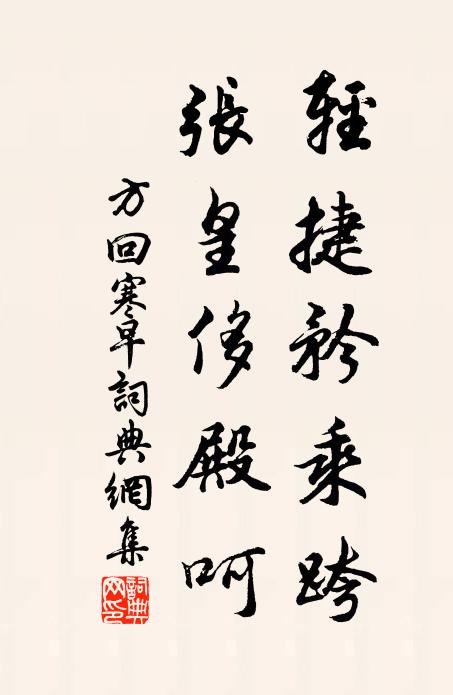 輕捷矜乘跨
張皇侈殿呵
方回寒早詞典網集
詞典網印